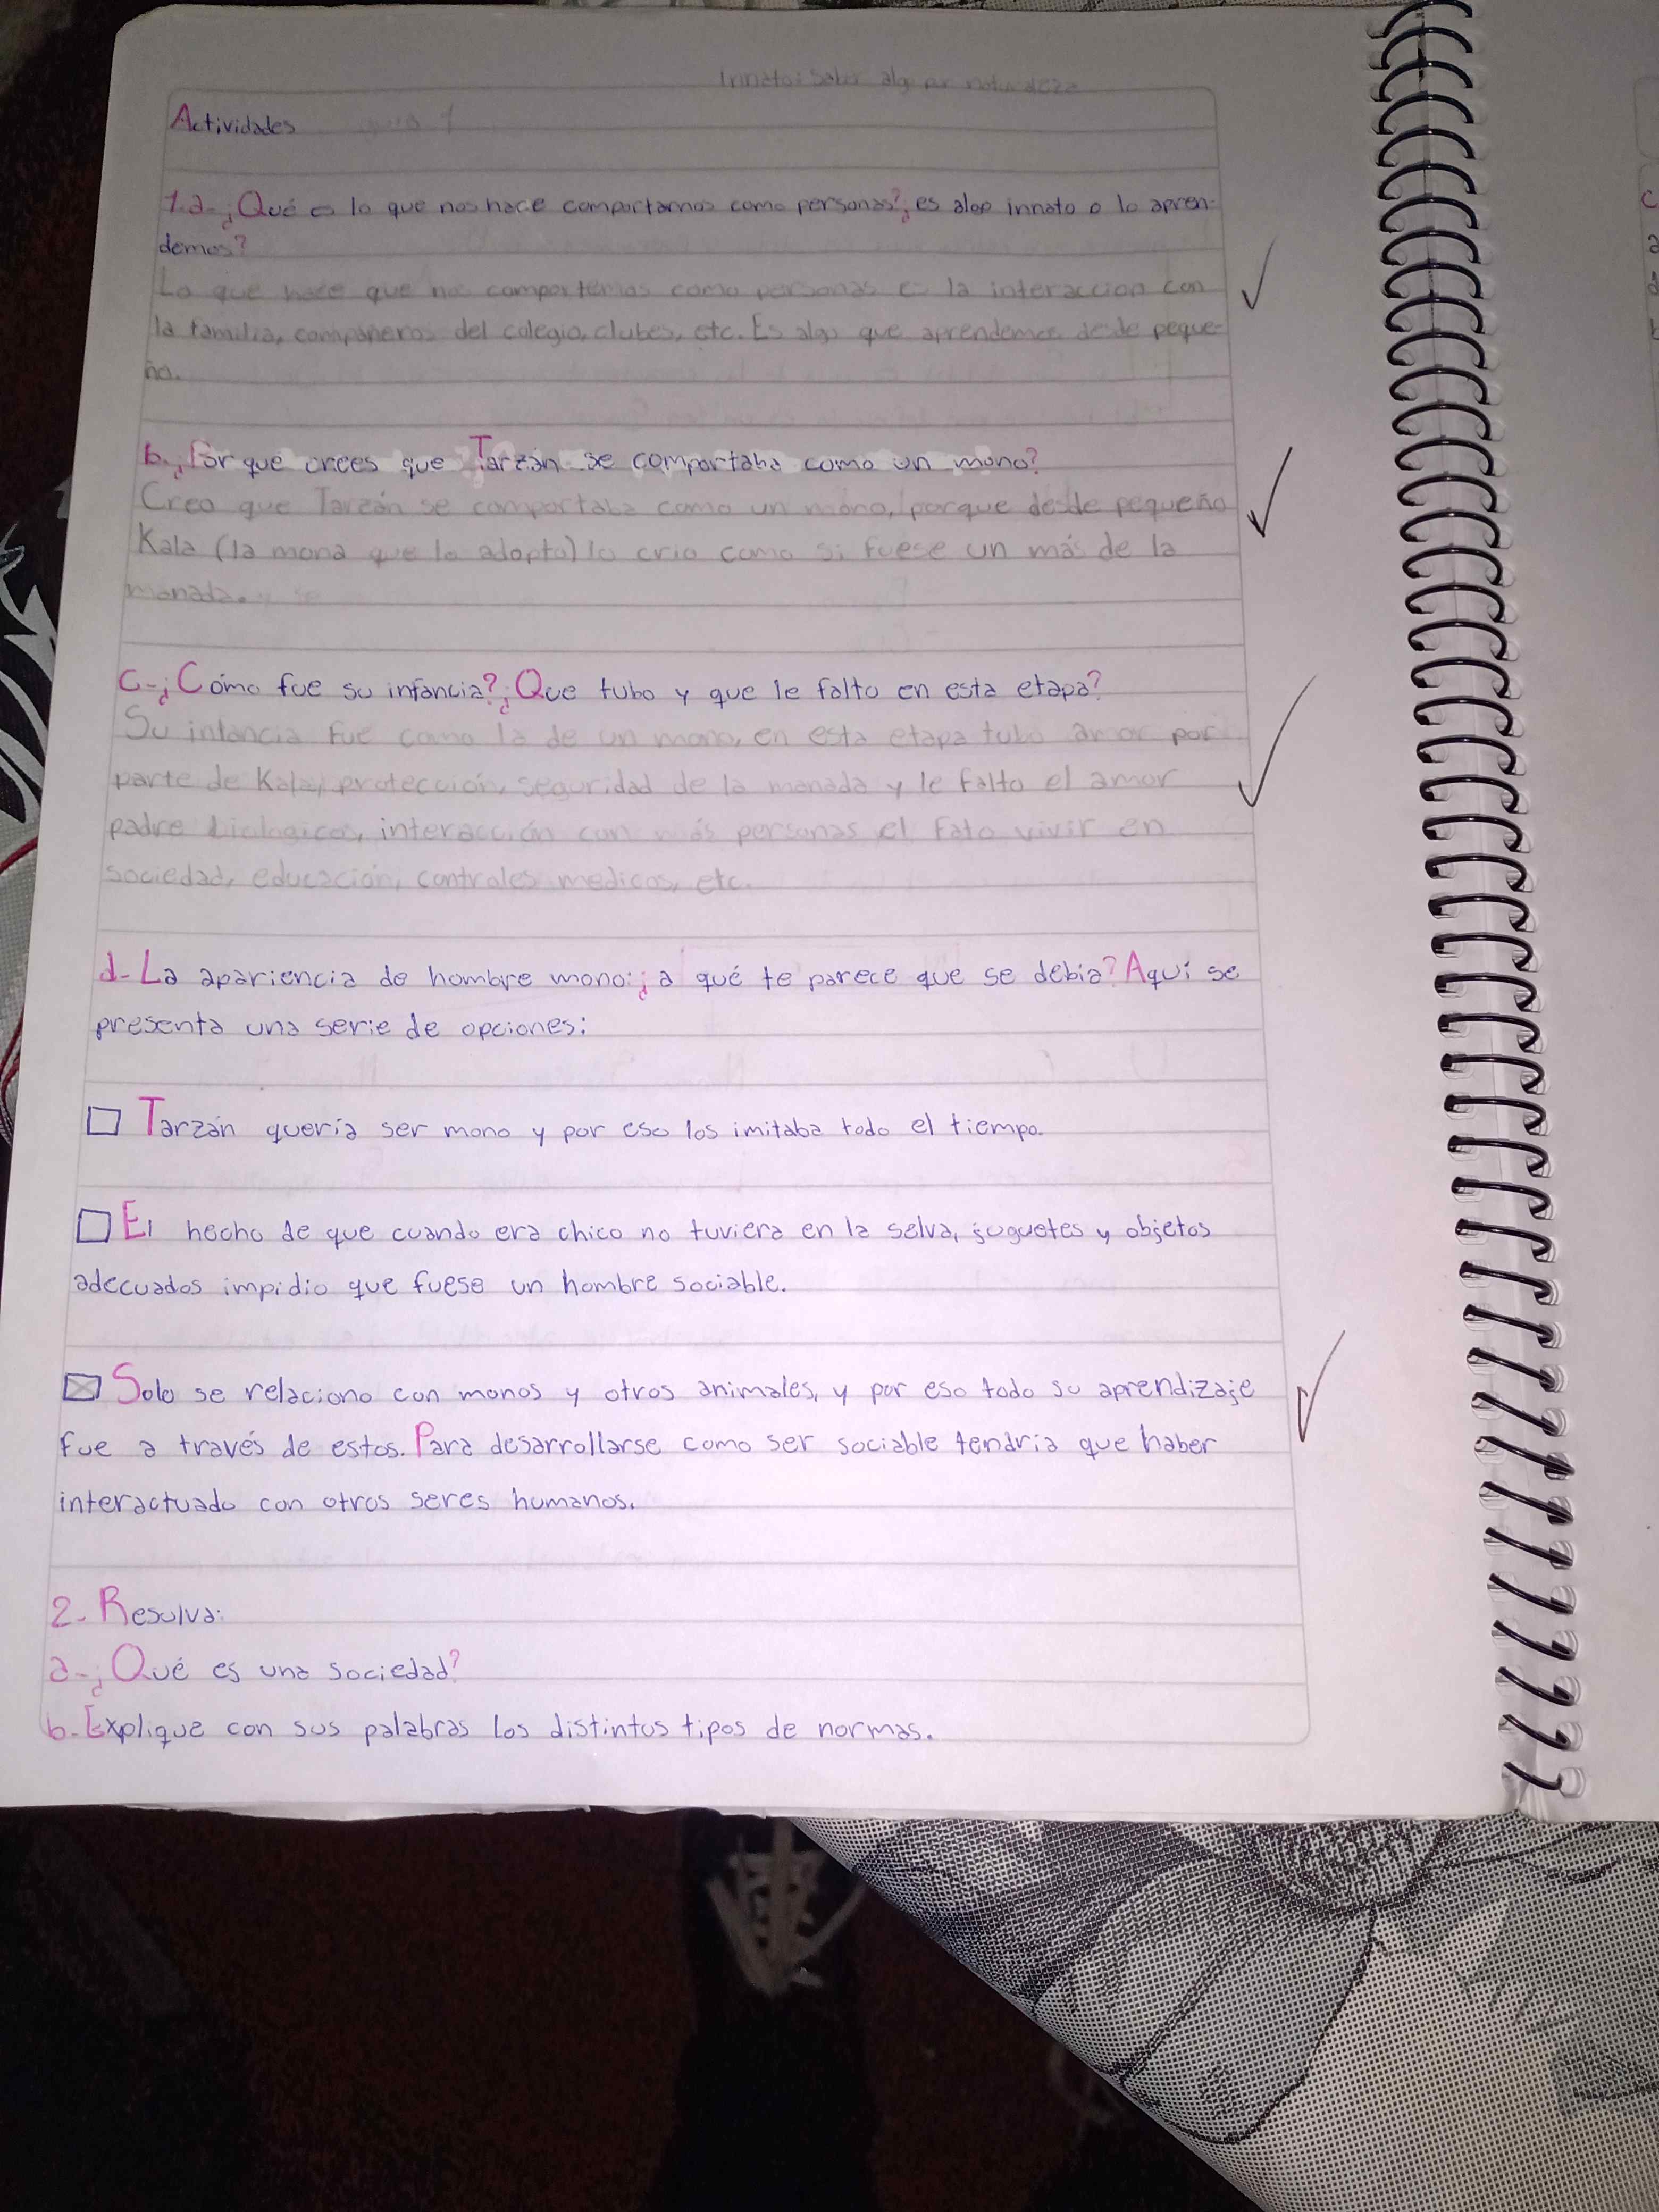 Innato: Saber algo por naturaleza
Actividades
1.a-¿Qué es lo que nos hace comportarnos como personas?¿es algo innato o lo apren-
demos?
Lo que hace que nos comportemos como personas es la interaccion con
la familia, compañeros del colegio, clubes, etc. Es algo que aprendemos desde peque-
ño.
b-¿Por que crees que Tarzán se comportaba como un mono?
Creo que Tarzán se comportaba como un mono, porque desde pequeño
Kala (la mona que lo adopto) lo crio como si fuese un más de la
manada.
c-¿Cómo fue su infancia?¿Que tubo y que le falto en esta etapa?
Su infancia fue como la de un mono, en esta etapa tubo amor por
parte de Kala, protección, seguridad de la manada y le falto el amor
padre biologicos, interacción con más personas el fato vivir en
sociedad, educación, controles medicos, etc.
d-La apariencia de hombre mono:¿a qué te parece que se debia? Aquí se
presenta una serie de opciones:
Tarzán quería ser mono y por eso los imitaba todo el tiempo.
El hecho de que cuando era chico no tuviera en la selva, juguetes y objetos
adecuados impidio que fuese un hombre sociable.
Solo se relaciono con monos y otros animales, y por eso todo su aprendizaje
fue a través de estos. Para desarrollarse como ser sociable tendria que haber
interactuado con otros seres humanos.
2-Resolva:
a-¿Qué es una sociedad?
b-Explique con sus palabras los distintos tipos de normas.